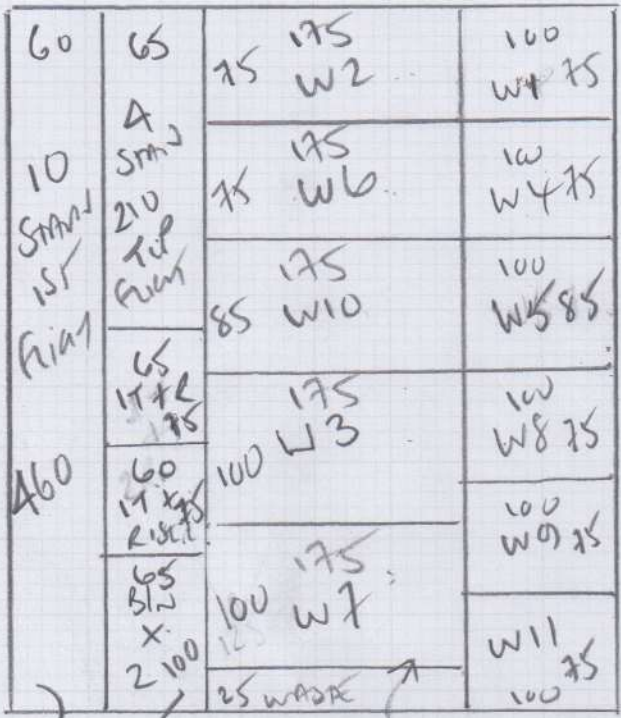 60
10
STAND
1ST
FLIGHT
460
65
4
STAND
210
TOP
FLIGHT
65
1T
75
60
1T X 75
RISER
65
BIN
X
2 100
175
75 W2
175
75 W6
175
85 W10
175
W3
100
175
100 W7
125
25 WASTE
100
W1 75
100
W4 75
100
W5 85
100
W8 75
100
W9 75
W11
75
100